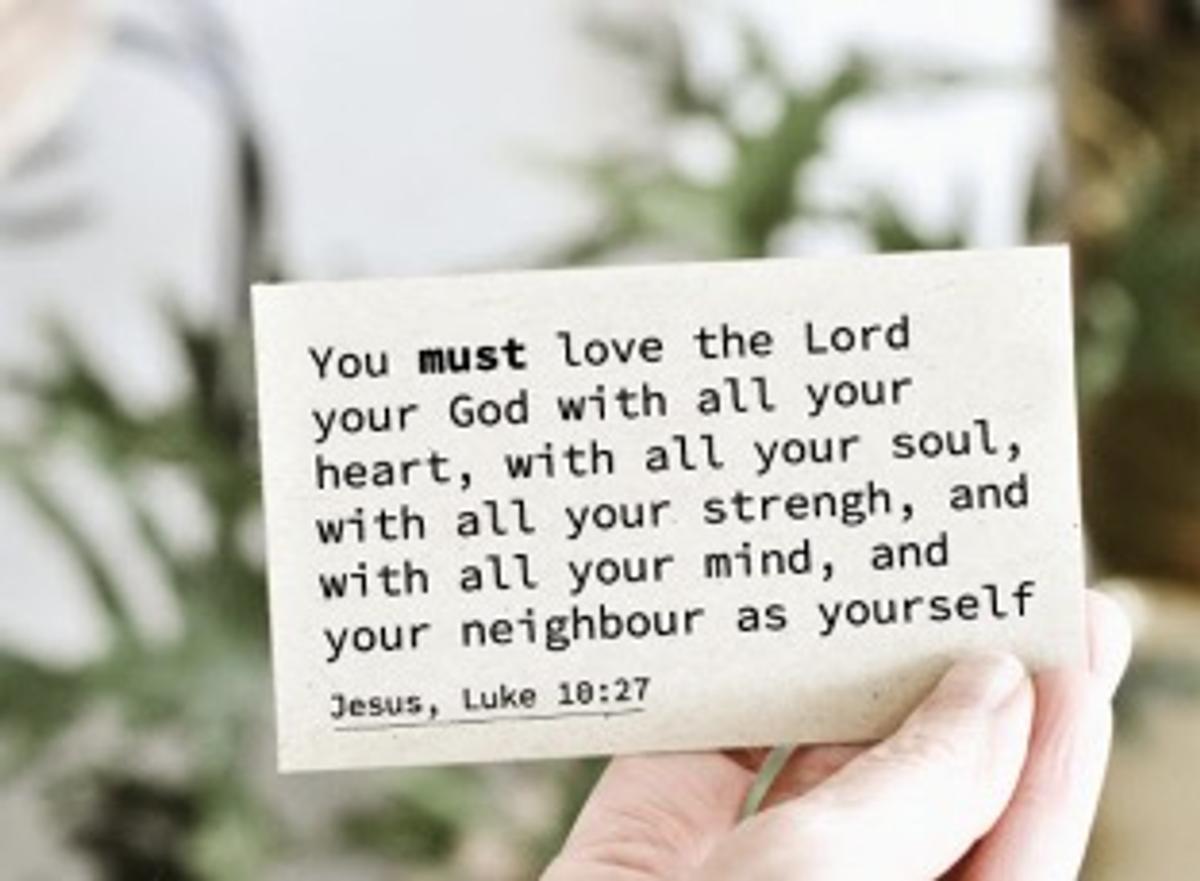 You must love the Lord
your God with all your
heart, with all your soul,
with all your strengh, and
with all your mind, and
your neighbour as yourself
Jesus, Luke 10:27